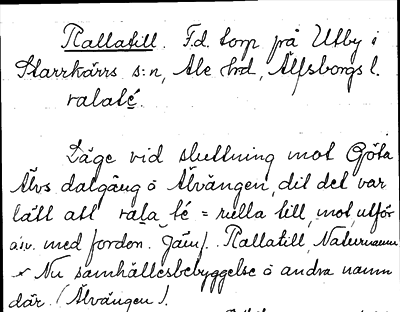 Rallatill. F.d. torp på Utby i
Starrkärrs s:n, Ale hrd, Älfsborgs l.
ralaté.
Läge vid sluttning mot Göta
Älvs dalgång ö Älvängen, dit det var
lätt att rala té = rulla till, mot, utför
äv. med fordon. Jämf. Rallatill, Naturnamn
x Nu samhällesbebyggelse ö andra namn
där. (Älvängen).